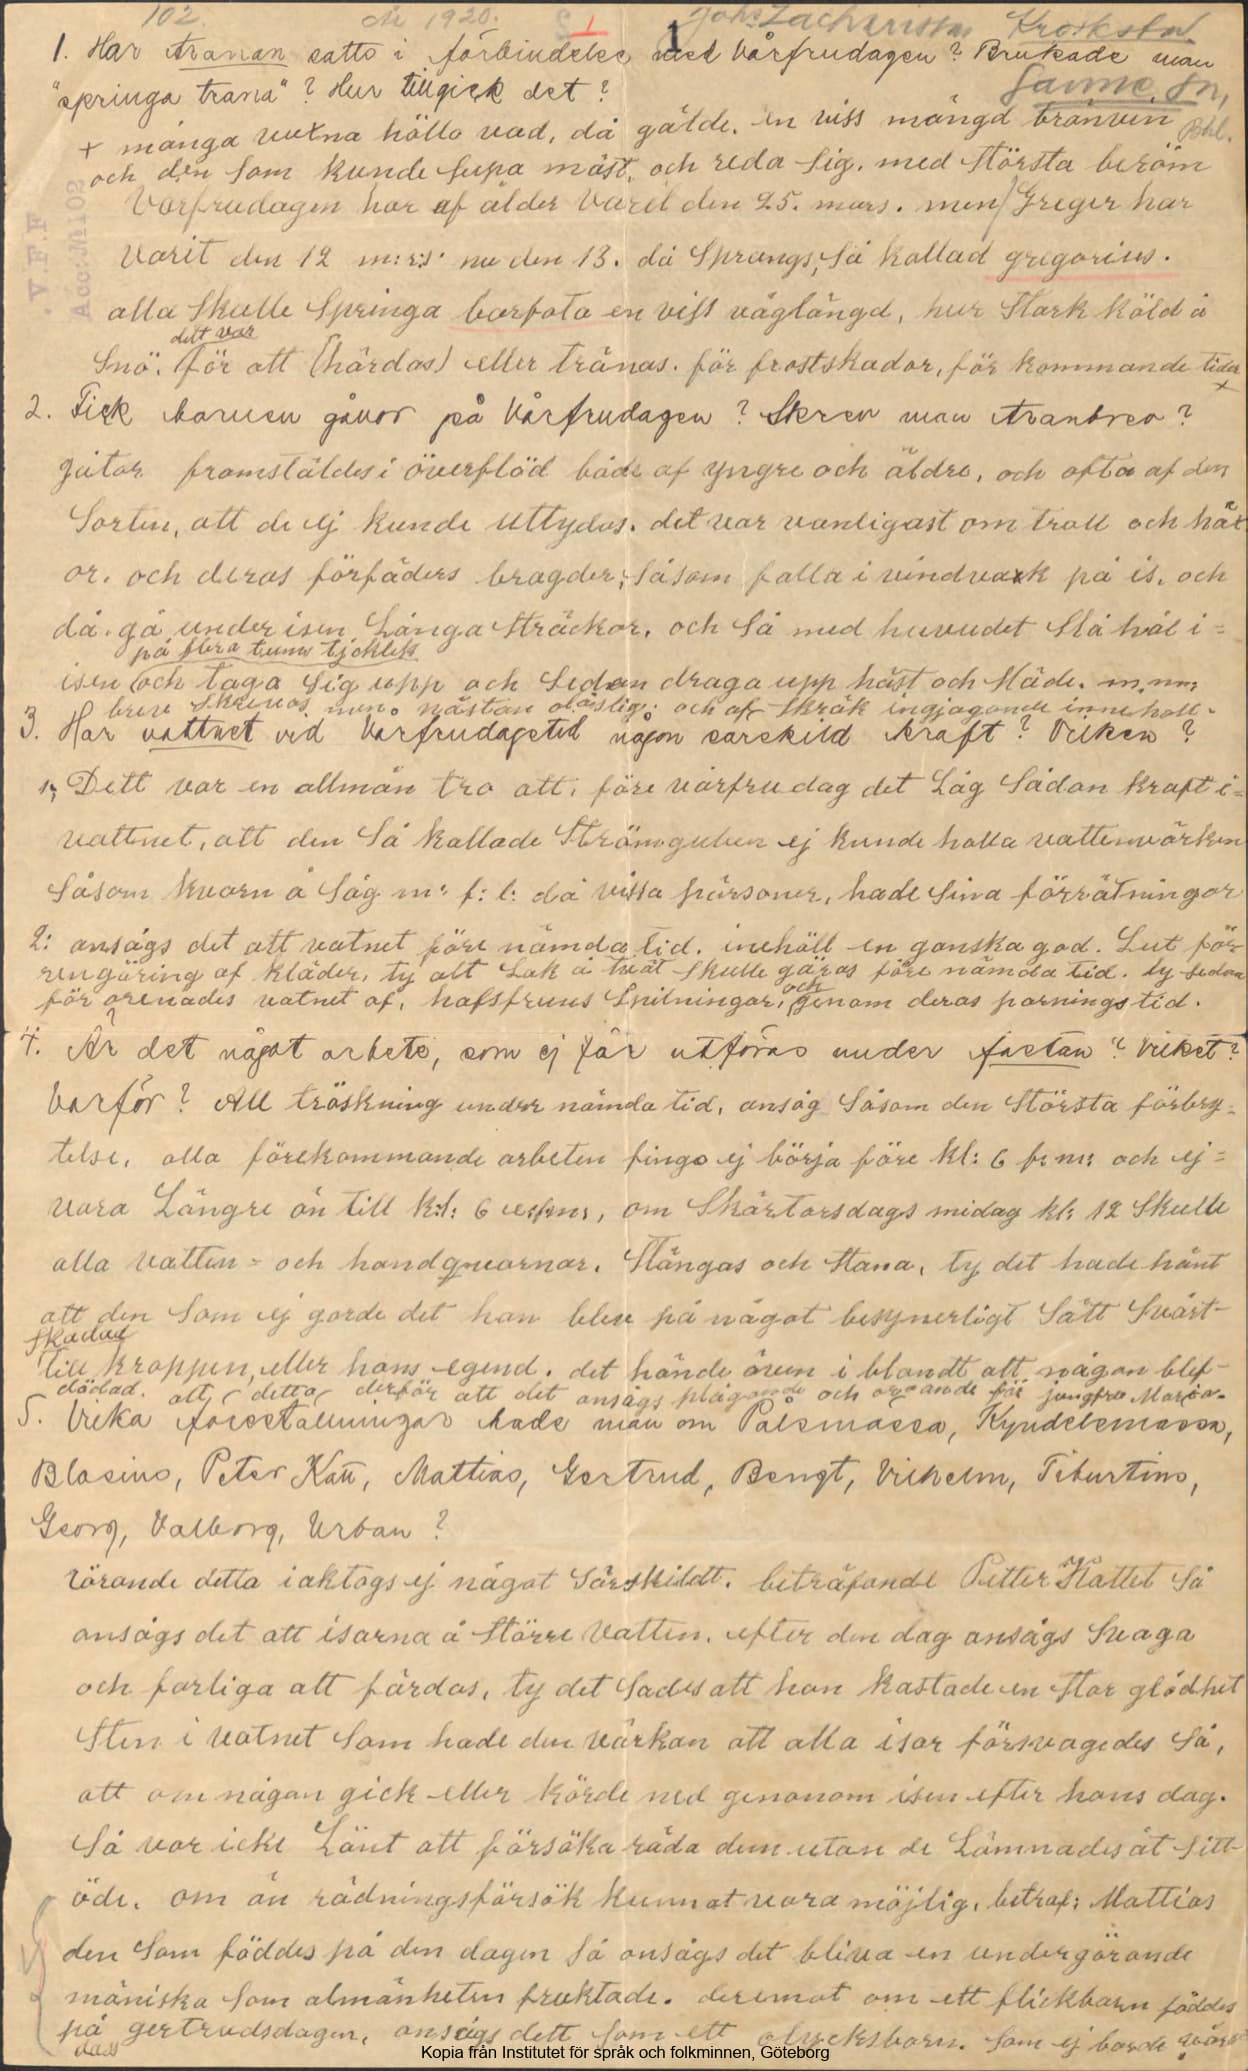 102.
År 1920.
1
Joh: Zachrisson Krokstad
Sanne. Sn,
Bhl.
V.F.F
Acc: N:102
1. Har tranan satts i förbindelse med Vårfrudagen? Brukade man
"springa trana"? Hur tillgick det?
+ många vuxna höllo vad, då gälde. en viss mängd bränvin
och den som kunde supa mäst, och reda sig. med största beröm
Vårfrudagen har af ålder varit den 25. mars. men Greger har
varit den 12 m:r:s: nu den 13. då Sprangs, så kallad gregorius.
alla skulle springa barfota en viss väglängd, hur stark köld å
dett var
Snö. för att (härdas) eller tränas. för frostskador, för kommande tider
+
2. Fick barnen gåvor på Vårfrudagen? Skrev man tranbrev?
gåtor framstäldes i överflöd både af yngre och äldre, och ofta af den
Sorten, att de ej kunde uttydas. det var vanligast om troll och häx
or. och deras förfäders bragder; såsom falla i vindvak på is. och
då gå under isen Långa sträckor. och så med huvudet slå hål i =
på flera tums tjocklek
isen och taga sig upp och sedan draga upp häst och släde. m.m:
breve skrevos men. nästan oläslig: och af skräk ingjagande innehåll.
3. Har vattnet vid Vårfrudagstid någon särskild kraft? Vilken?
1; Dett var en allmän tro att, före vårfrudag det Låg sådan kraft i=
vattnet, att den så kallade Strömguben ej kunde hålla vattenvärken
såsom kvarn å såg m: f: l: då vissa pärsoner, hade sina förrätningar
2: ansågs det att vatnet före nämda tid. inehöll en ganska god. Lut för
rengöring af kläder, ty alt Lak å tvät skulle göras före nämda tid. ty sedan
för orenades vatnet af, hafsfruns Spilningar, och genom deras parningstid.
4. Är det något arbete, som ej får utföras under fastan? Vilket?
Varför? All tröskning under nämda tid, ansåg såsom den största förbry=
telse, alla förekommande arbeten fingo ej börja före kl: 6 f: m: och ej=
vara Längre än till k:l: 6 e:m:, om Skärtorsdags midag kl: 12 Skulle
alla vatten = och handqvarnar. Stängas och stana, ty det hade hänt
att den som ej gorde det han blev på något besynerligt Sätt Svårt-
skadad
till kroppen, eller hans egend. det hände även i blandt att någon blef-
dödad. alt detta derför att det ansågs plågande och oroande för jungfru Maria.
5. Vilka föreställningar hade man om Pålsmässa, Kyndelsmässa,
Blasius, Peter Katt, Mattias, Gertrud, Bengt, Vilhelm, Tiburtius,
Georg, Valborg, Urban?
rörande detta iaktogs ej något Särskildt. beträfande Petter Kattet så
ansågs det att isarna å större vatten. efter den dag ansågs Svaga
och farliga att färdas, ty det sades att han kastade en stor glödhet
sten i vatnet som hade den värkan att alla isar försvagedes så,
att om någon gick eller körde ned genonom isen efter hans dag.
så var icke Lönt att försöka räda dem utan de Lämnades åt sitt
öde. om än rädningsförsök kunnat vara möjlig, betraf: Mattias
den som föddes på den dagen så ansågs det bliva en undergörande
mäniska som almänheten fruktade. deremot om ett flickbarn föddes
på gertrudsdagen, ansågs dett som ett olycksbarn. som ej borde
Kopia från Institutet för språk och folkminnen, Göteborg